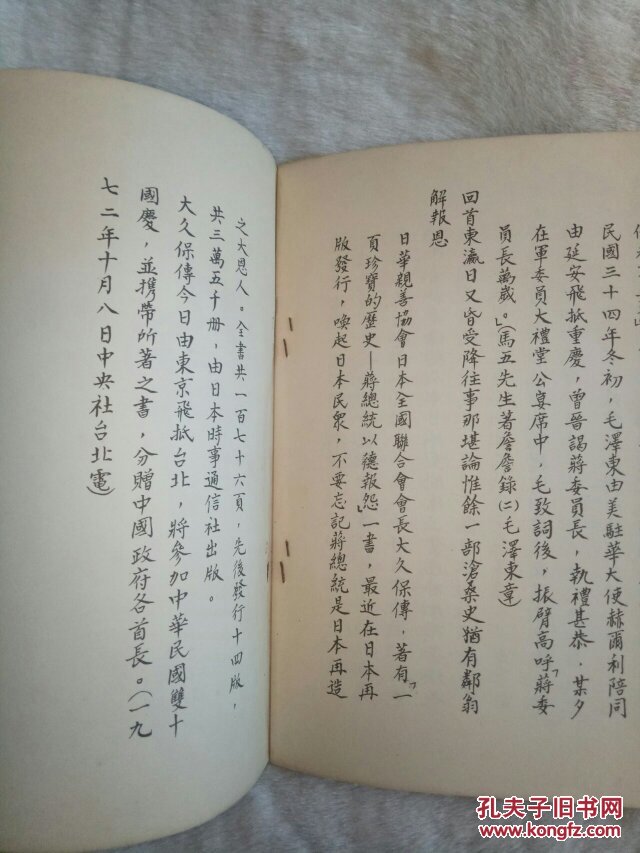 民國三十四年冬初，毛澤東由美駐華大使赫爾利陪同
由延安飛抵重慶，曾晉謁蔣委員長，執禮甚恭．某夕
在軍委員大禮堂公宴席中，毛致詞後，振臂高呼「蔣委
員長萬歲。」(馬五先生著詹詹錄(二)毛澤東章)
回首東瀛日又昏受降往事那堪論惟餘一部滄桑史猶有鄰翁
解報恩
日華親善協會日本全國聯合會會長大久保傳．著有「一
頁珍寶的歷史—蔣總統以德報怨」一書，最近在日本再
版發行，喚起日本民衆，不要忘記蔣總統是日本再造
之大恩人。全書共一百七十六頁，先後發行十四版，
共三萬五千册，由日本時事通信社出版。
大久保傳今日由東京飛抵台北，將參加中華民國雙十
國慶，並携帶所著之書，分贈中國政府各首長。(一九
七二年十月八日中央社台北電)
孔夫子旧书网
www.kongfz.com